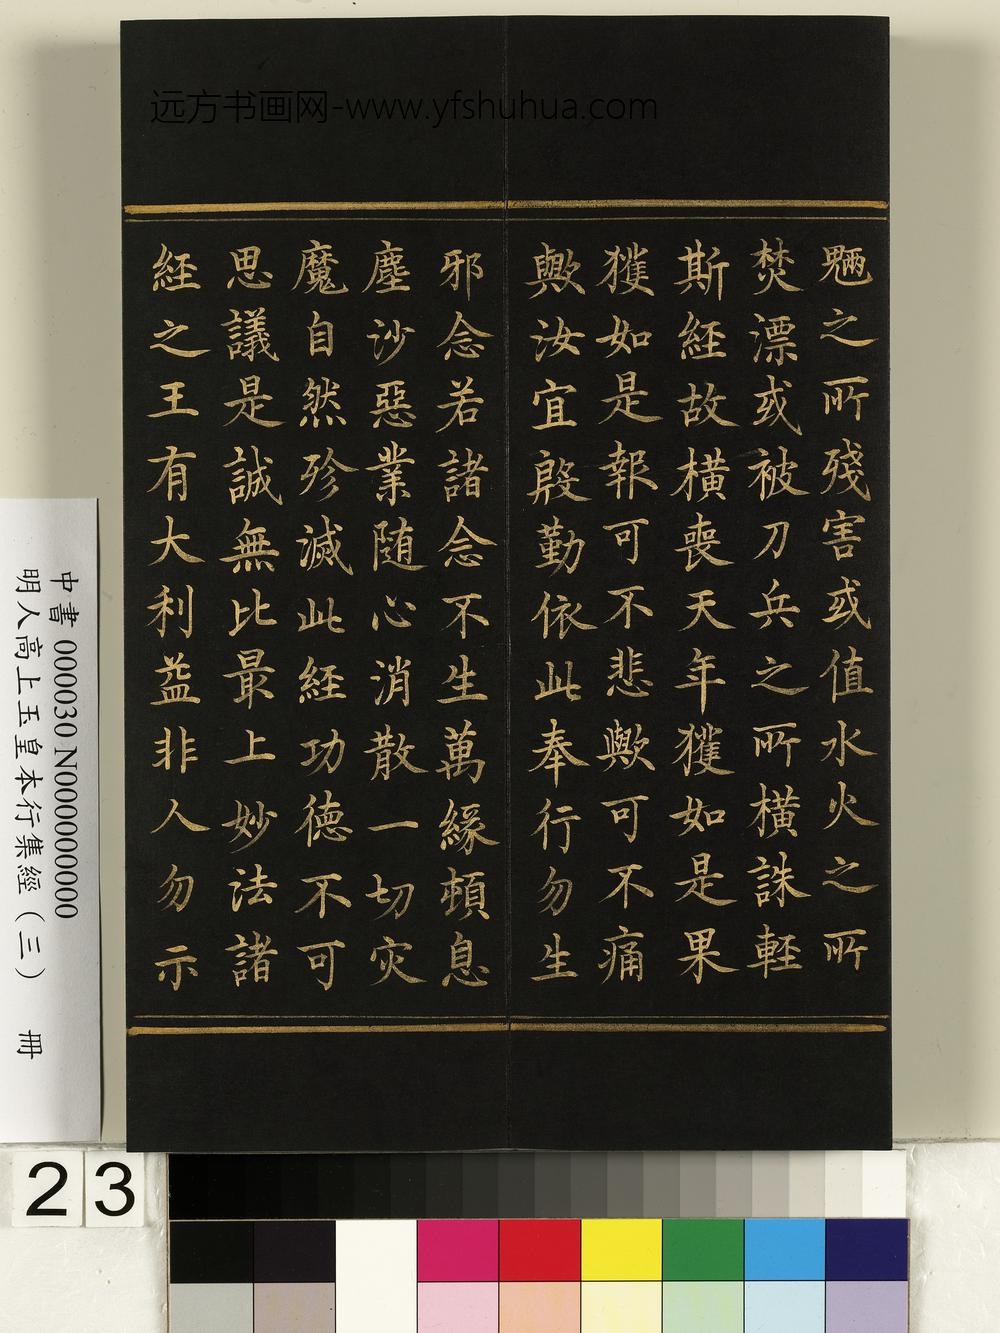 远方书画网-www.yfshuhua.com
魎之所殘害或值水火之所
焚漂或被刀兵之所橫誅輕
斯經故橫喪天年獲如是果
獲如是報可不悲歟可不痛
歟汝宜殷勤依此奉行勿生
邪念若諸念不生萬緣頓息
塵沙惡業随心消散一切灾
魔自然殄滅此經功德不可
思議是誠無比最上妙法諸
經之王有大利益非人勿示
中書 000030 N000000000
明人高上玉皇本行集經（三） 冊
23